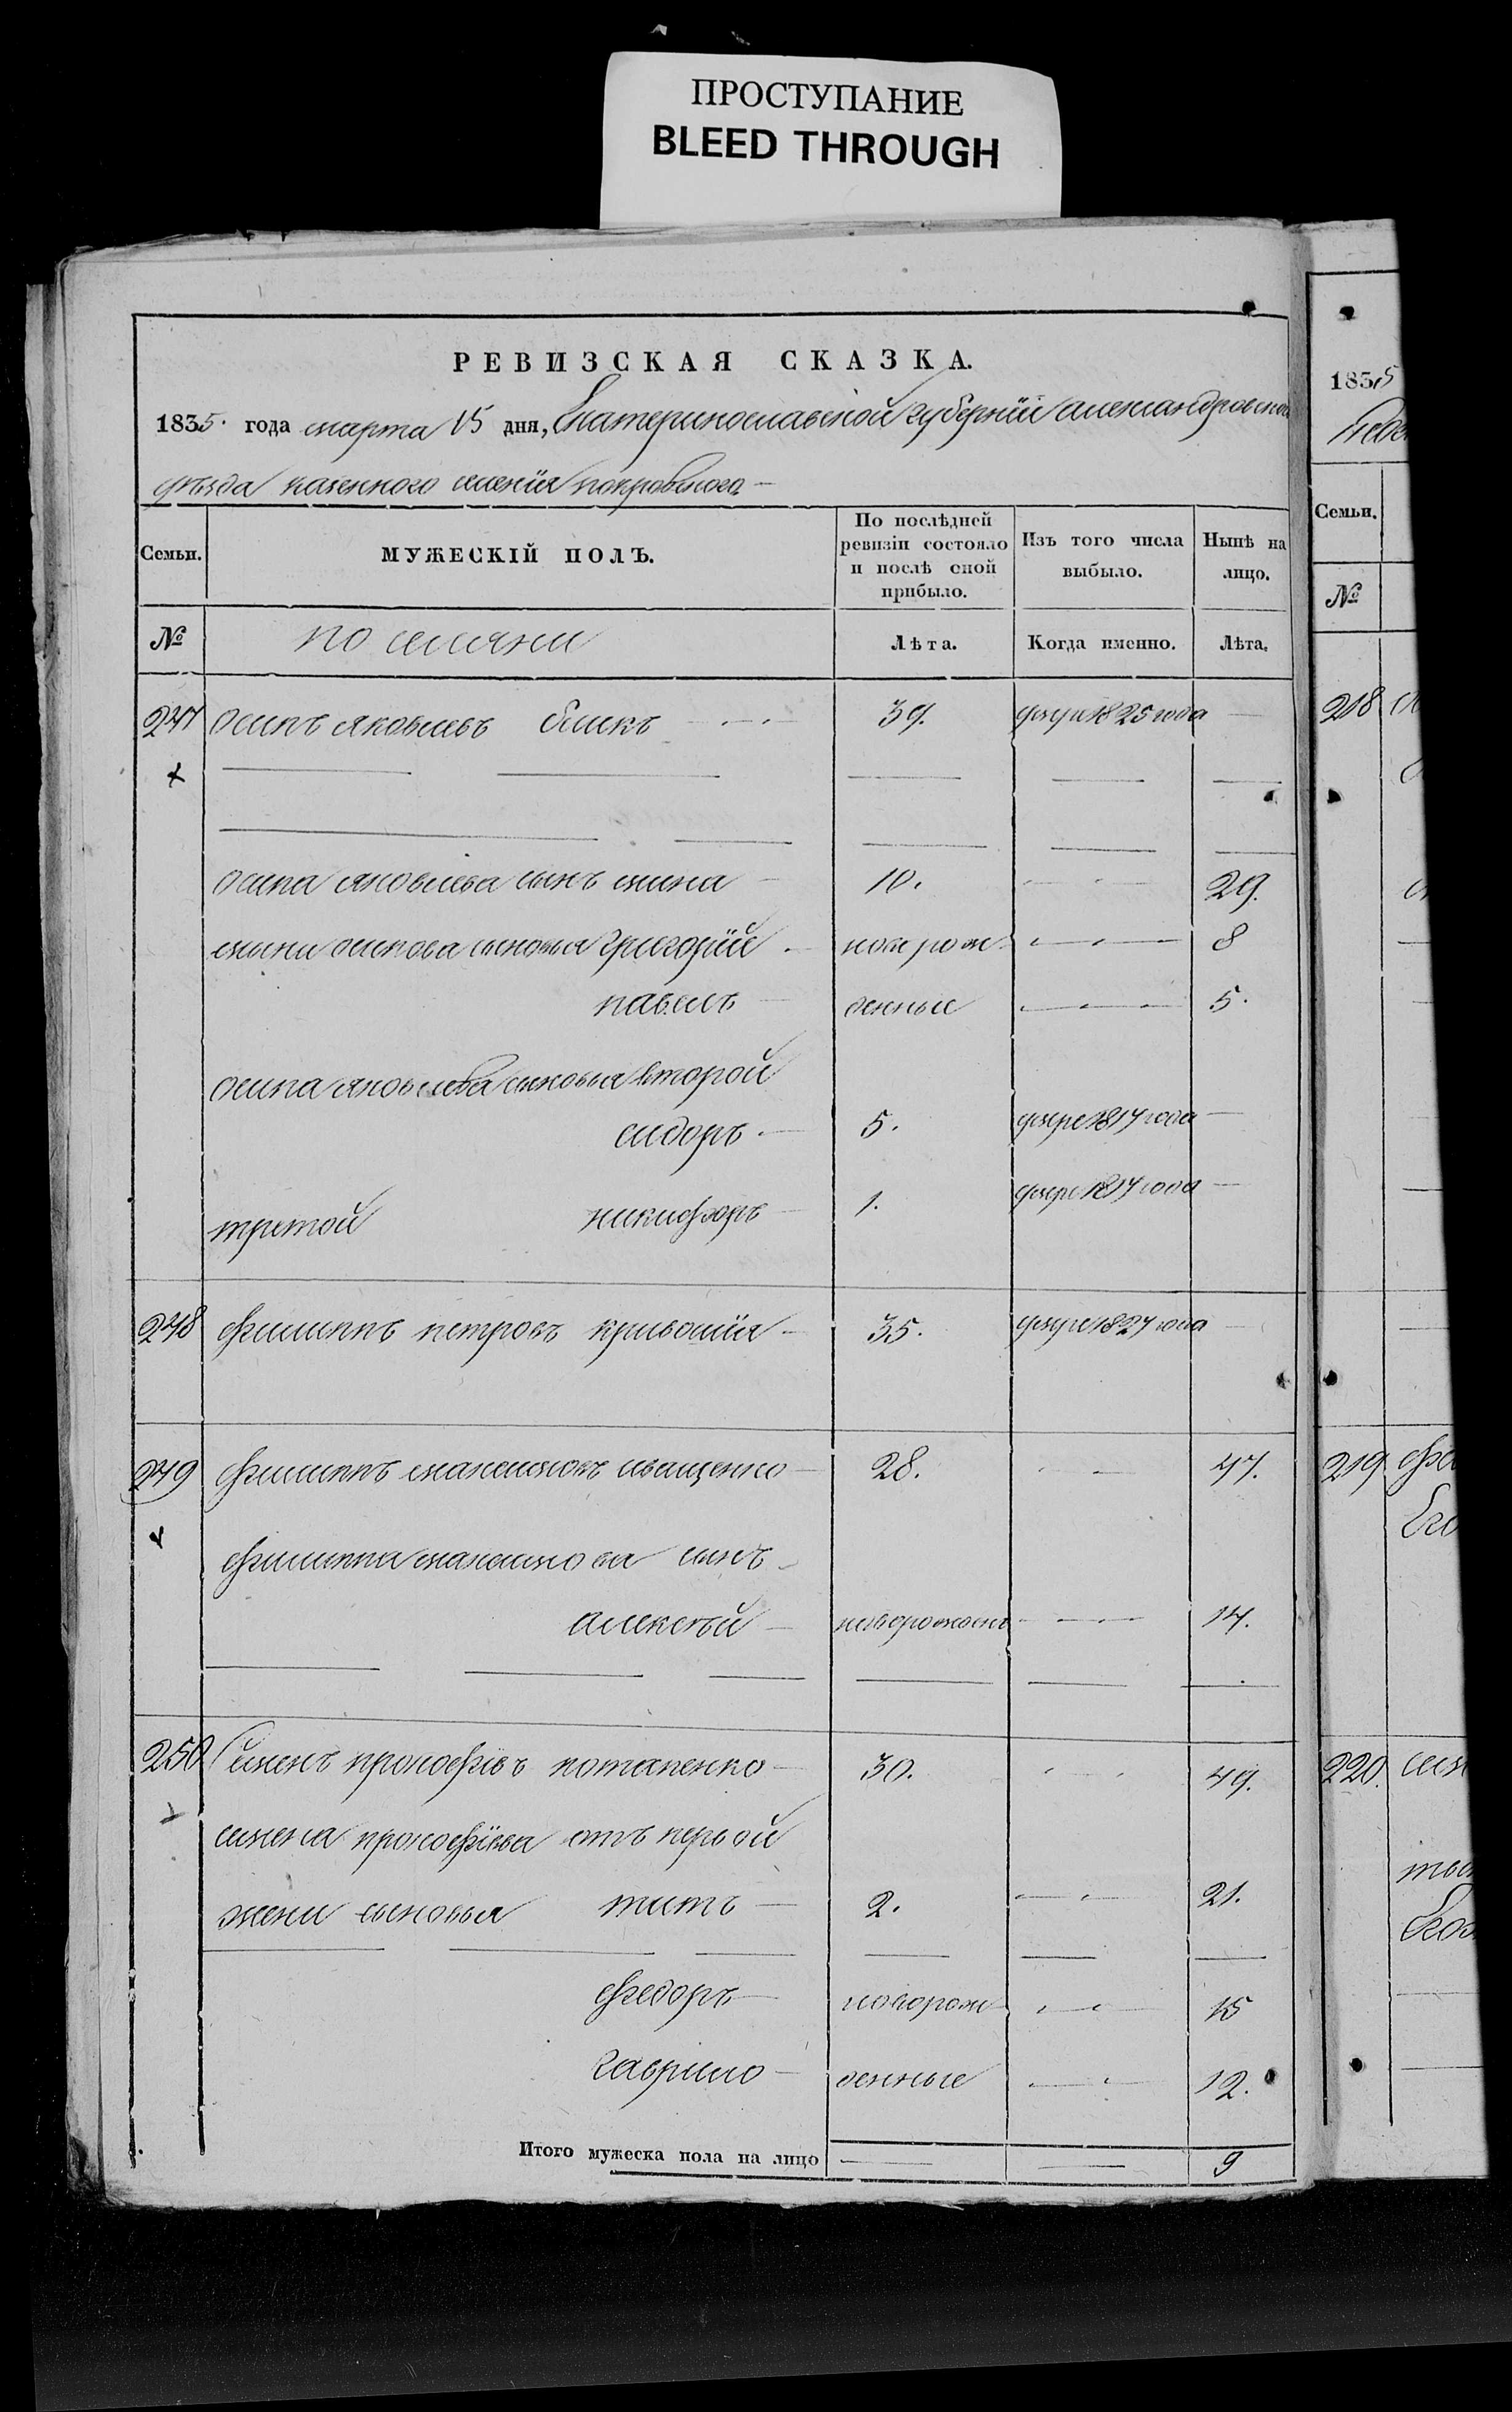 ПРОСТУПАНИЕ
BLEED THROUGH
РЕВИЗСКАЯ СКАЗКА.
1835. года марта 15 дня, Екатеринославской губернии александровского
уезда казенного селения покровского
Семьи. МУЖЕСКІЙ ПОЛЪ. По послѣдней ревизіи состояло и послѣ оной прибыло. Изъ того числа выбыло. Нынѣ на лицо.
№ поселяни Лѣта. Когда именно. Лѣта.
247 осипъ яковлевъ 39. умре 1825 года
осипа яковлева сынъ мина 10. 29.
мини осипова сыновья григорій новорож 8
павелъ денные 5.
осипа яковлева сыновья второй
сидоръ 5. умре 1817 года
третой никифоръ 1. умре 1817 года
248 филиппъ петровъ кривошія 35. умре 1827 года
249 филиппъ максимовъ иващенко 28. 47.
филиппа максимова сынъ
алексѣй новорожден 14.
250 Семенъ прокофіевъ потапенко 30. 49.
семена прокофіева отъ первой
жени сыновья титъ 2. 21.
федоръ новорож 15
гаврило денные 12.
Итого мужеска пола на лицо 9
1835
Семьи.
№
218
219
220.